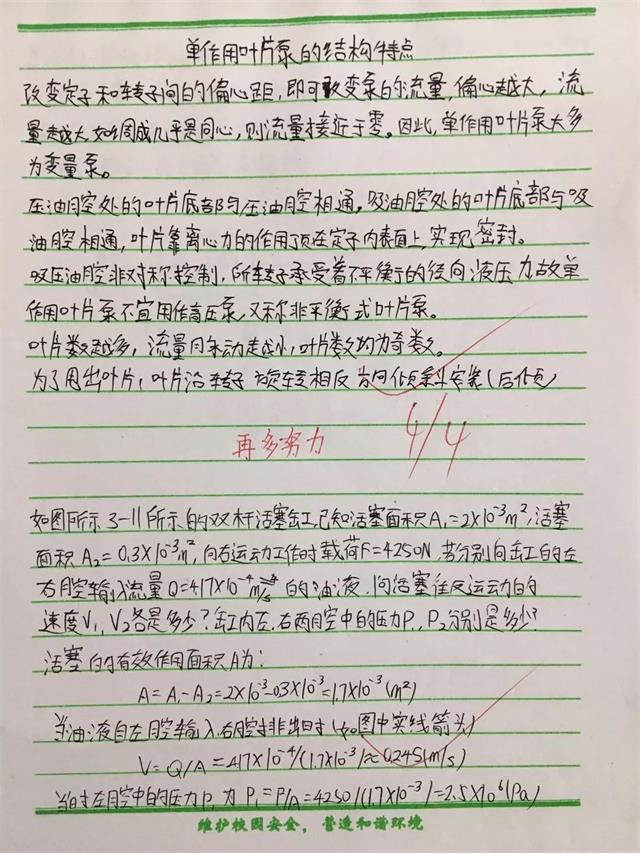 单作用叶片泵的结构特点
改变定子和转子间的偏心距,即可改变泵的流量,偏心越大,流
量越大,如调成几乎是同心,则流量接近于零。因此,单作用叶片泵大多
为变量泵。
压油腔处的叶片底部与压油腔相通。吸油腔处的叶片底部与吸
油腔相通,叶片靠离心力的作用顶在定子内表面上实现密封。
吸压油腔非对称控制,所转子承受着不平衡的径向液压力故单
作用叶片泵不宜用作高压泵,又称非平衡式叶片泵。
叶片数越多,流量脉动越小,叶片数均为奇数。
为了甩出叶片,叶片沿转子旋转相反方向倾斜安装(后倾)
4/4
再多努力
如图所示3-11所示的双杆活塞缸,已知活塞面积A₁=2×10⁻³m²,活塞
面积A₂=0.3×10⁻³m²,向右运动工作时载荷F=4250N,若分别向缸的左
右腔输入流量Q=4.17×10⁻⁴m³/s的油液.问活塞往反运动的
速度V₁,V₂各是多少?缸内左.右两腔中的压力P₁,P₂分别是多少?
活塞的有效作用面积A为:
A=A₁-A₂=2×10⁻³-0.3×10⁻³=1.7×10⁻³(m²)
当油液自左腔输入.右腔排出时(如图中实线箭头)
V=Q/A=4.17×10⁻⁴/(1.7×10⁻³)≈0.245(m/s)
当时左腔中的压力P₁为P₁=F/A=4250/(1.7×10⁻³)=2.5×10⁶(Pa)
维护校园安全,营造和谐环境